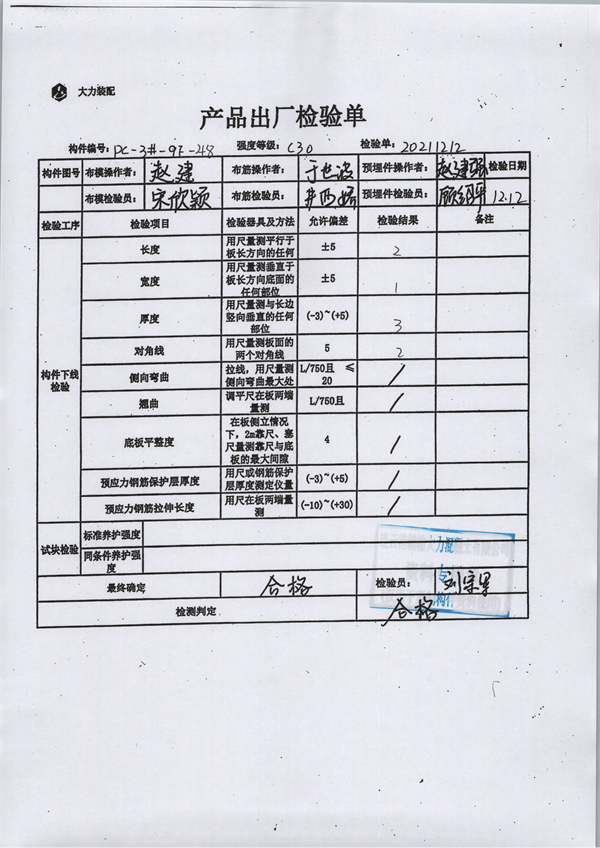 大力装配
产品出厂检验单
构件编号: PC-3#-9F-48 强度等级: C30 检验单: 20211212
构件图号 布模操作者: 赵建 布筋操作者: 于世波 预埋件操作者: 赵建强 检验日期
布模检验员: 宋欣颖 布筋检验员: 预埋件检验员: 12.12
检验工序 检验项目 检验器具及方法 允许偏差 检验结果 备注
构件下线检验
长度 用尺量测平行于板长方向的任何 ±5 2
宽度 用尺量测垂直于板长方向底面的任何部位 ±5 1
厚度 用尺量测与长边竖向垂直的任何部位 (-3)~(+5) 3
对角线 用尺量测板面的两个对角线 5 2
侧向弯曲 拉线，用尺量测侧向弯曲最大处 L/750且 ≤20 /
翘曲 调平尺在板两端量测 L/750且 /
底板平整度 在板侧立情况下，2m靠尺、塞尺量测靠尺与底板的最大间隙 4 /
预应力钢筋保护层厚度 用尺或钢筋保护层厚度测定仪量 (-3)~(+5) /
预应力钢筋拉伸长度 用尺在板两端量测 (-10)~(+30) /
试块检验 标准养护强度
同条件养护强度
最终确定 合格 检验员:
检测判定 合格